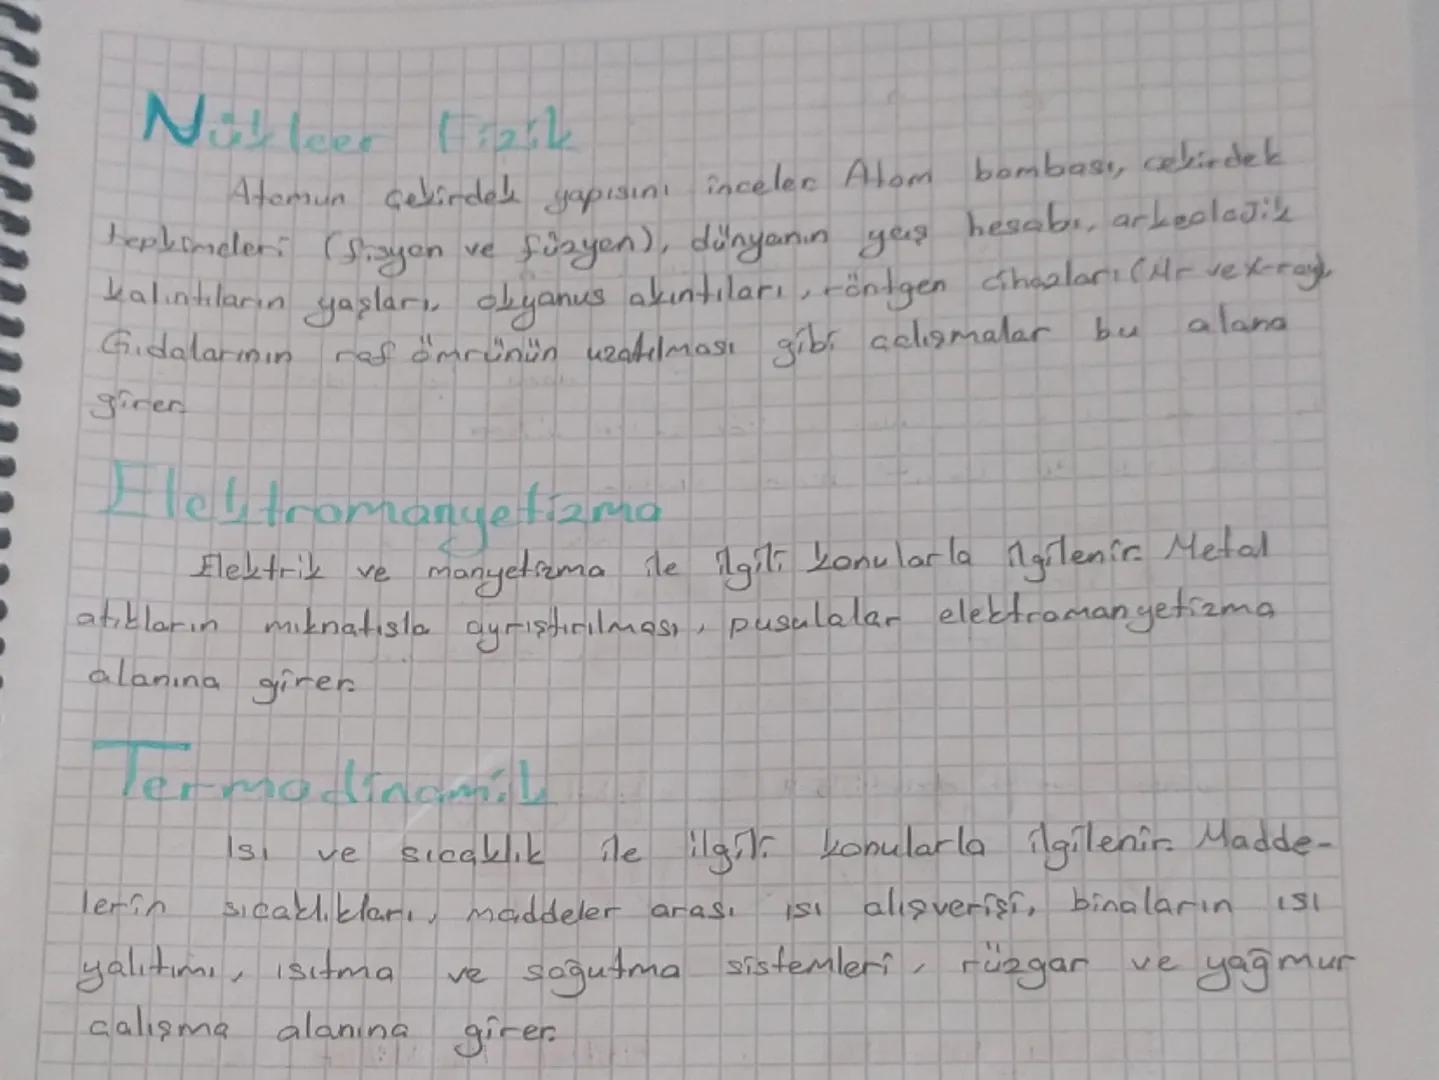 Nükleer Fizik
Atomun çekirdek yapısını inceler. Atom bombası, çekirdek
tepkimeleri (fisyon ve füzyon), dünyanın yaş hesabı, arkeolojik
kalıntıların yaşları, okyanus akıntıları, röntgen cihazları (Mr ve x-ray),
Gıdalarının raf ömrünün uzatılması gibi çalışmalar bu alana
girer.
Elektromanyetizma
Elektrik ve manyetizma ile ilgili konularla ilgilenir. Metal
atıkların mıknatısla ayrıştırılması, pusulalar elektromanyetizma
alanına girer.
Termodinamik
Isı ve sıcaklık ile ilgili konularla ilgilenir. Madde-
lerin sıcaklıkları, maddeler arası ısı alışverişi, binaların ısı
yalıtımı, ısıtma ve soğutma sistemleri, rüzgar ve yağmur
çalışma alanına girer.